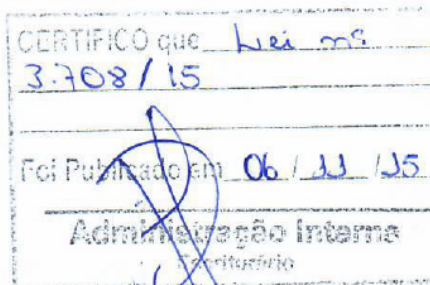 CERTIFICO que Lei nº
3.708/15
Foi Publicado em 06/11/15
Administração Interna
Escriturário